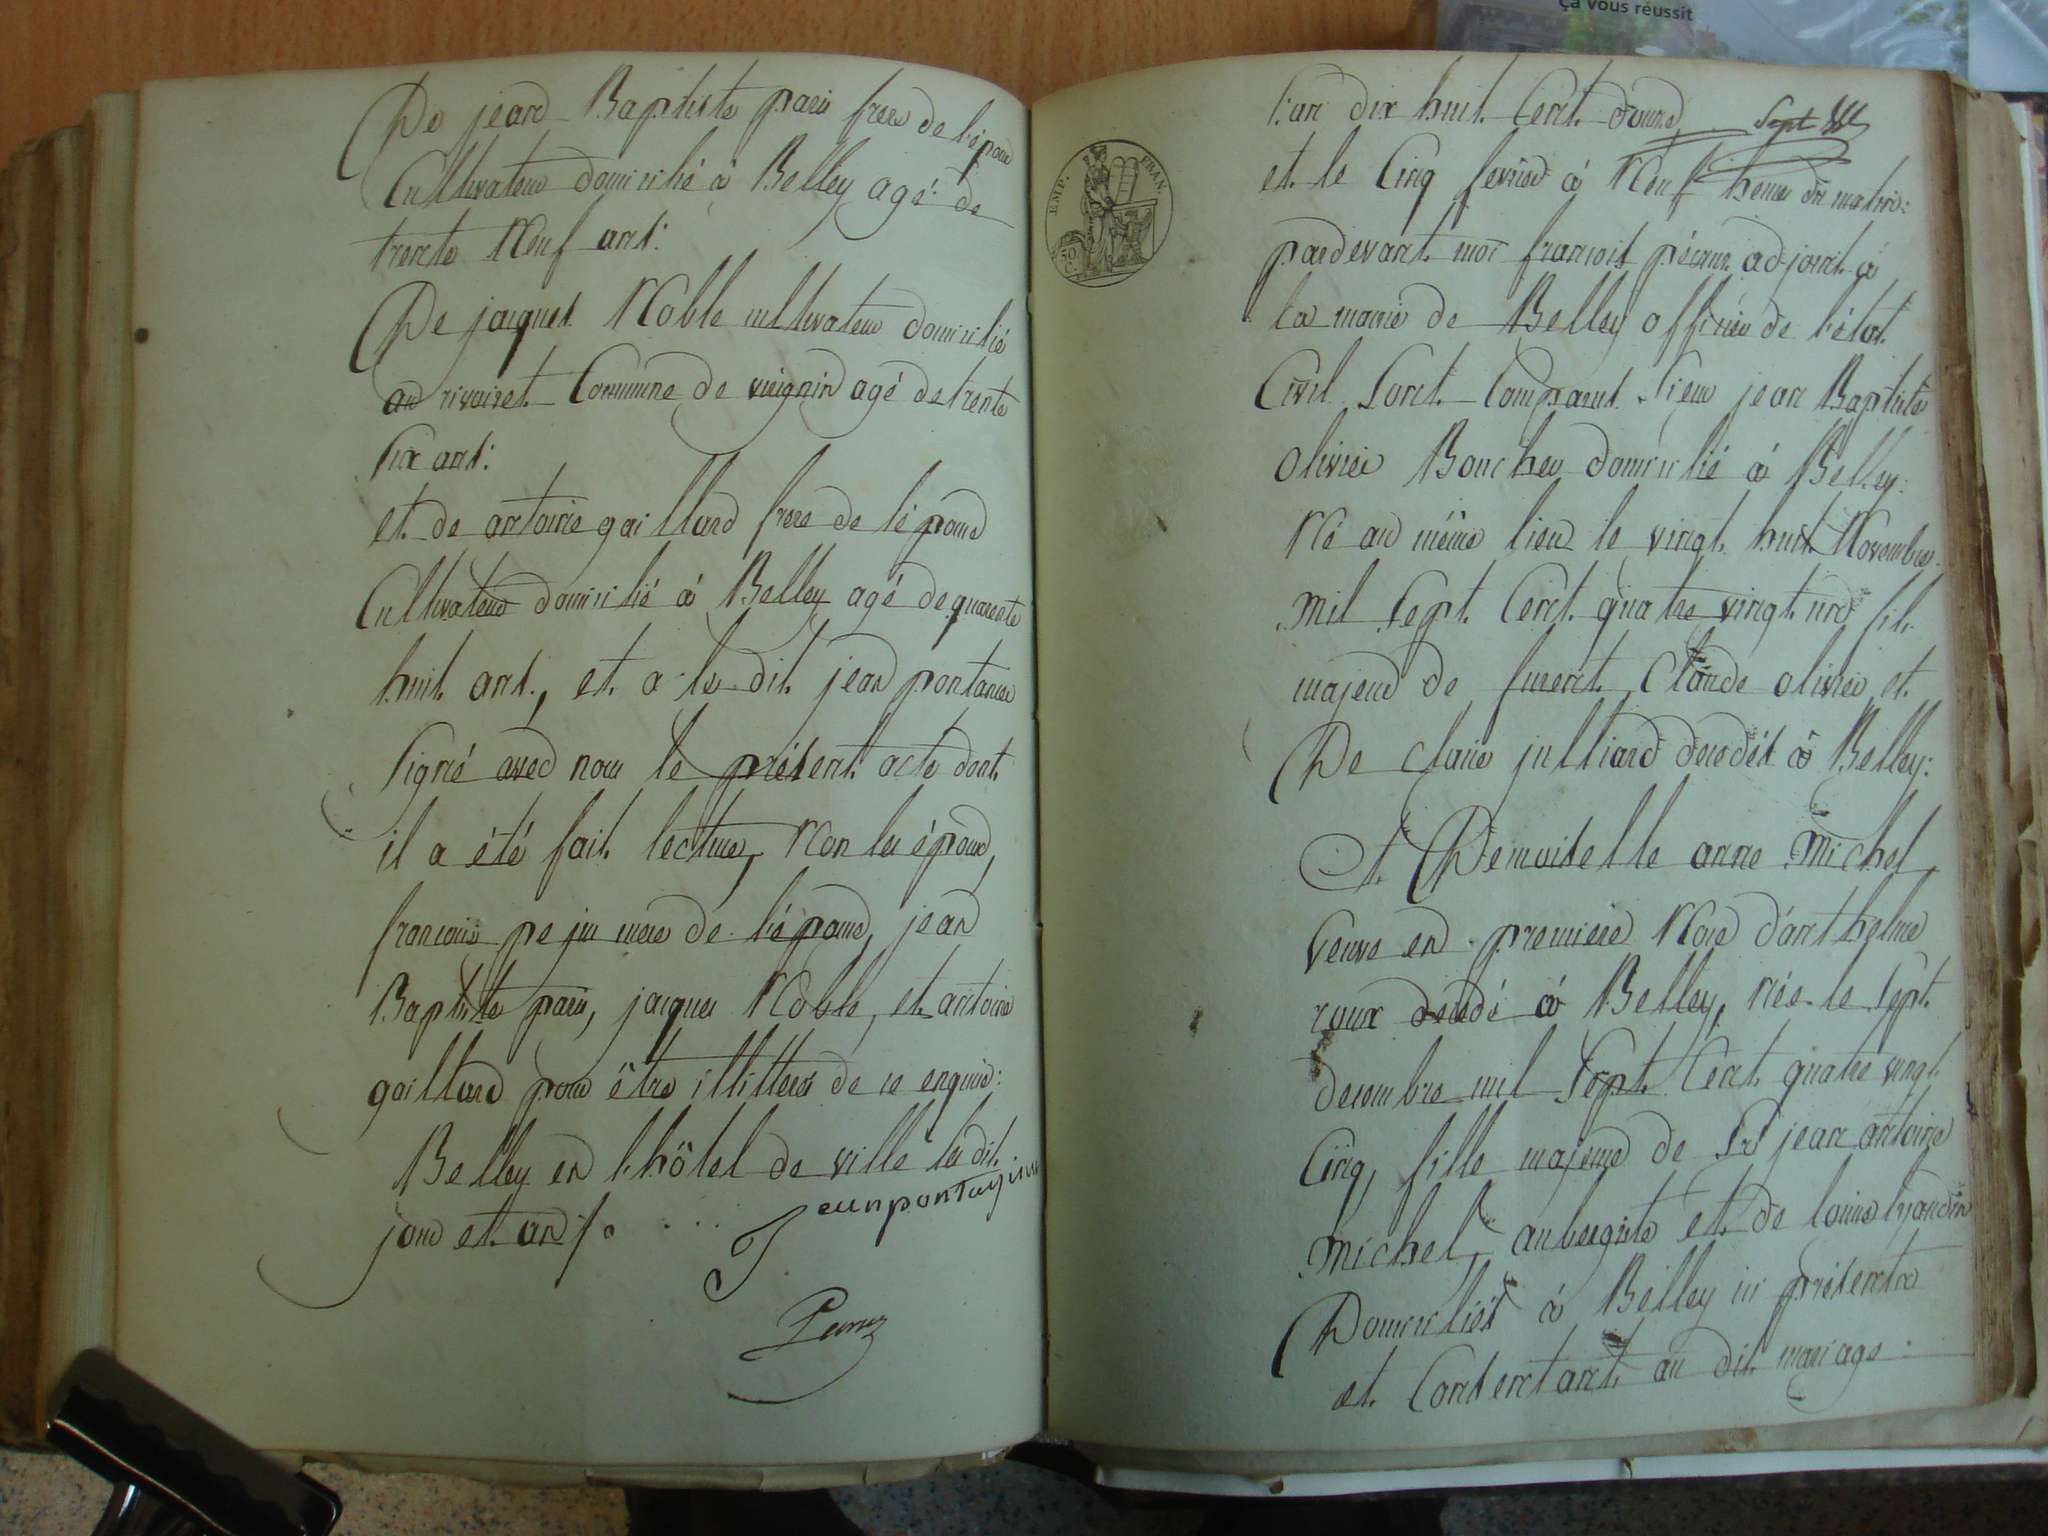 De jean Baptiste paris frere de l'épouse
Cultivateur domicilié à Belley agé de
trente Neuf ans:
De jacques Noble cultivateur domicilié
au rivoiret Commune de virignin agé de trente
six ans:
et de antoine gaillard frere de l'épouse
Cultivateur domicilié à Belley agé de quarente
huit ans, et a le dit jean pontanier
Signé avec nous le présent acte dont
il a été fait lecture, Non les époux,
francoise mere de l'épouse, jean
Baptiste paris, jacques Noble, et antoine
gaillard pour être illitteres de ce enquis:
Belley en l'hôtel de ville les dits
jour et an
l'an dix huit Cent douze Sept
et le Cinq fevrier à Neuf heures du matin:
pardevant moi francois adjoint à
la mairie de Belley officier de l'état
Civil Sont Comparus Sieur jean Baptiste
olivier Boucher domicilié à Belley:
Né au même lieu le vingt huit Novembre
mil Sept Cent quatre vingt un fils
majeur de Claude olivier et
De claire julliard decedés à Belley:
Et Demoiselle anne Michel
Veuve en premiere Noce d'anthelme
roux decedé à Belley, née le Sept
decembre mil Sept Cent quatre vingt
Cinq, fille majeure de Sr jean antoine
Michel, aubergiste et de louise
Domiciliés à Belley ici présents
et Consentants au dit mariage:
EMP. FRAN.
50 C.
Ça vous réussit